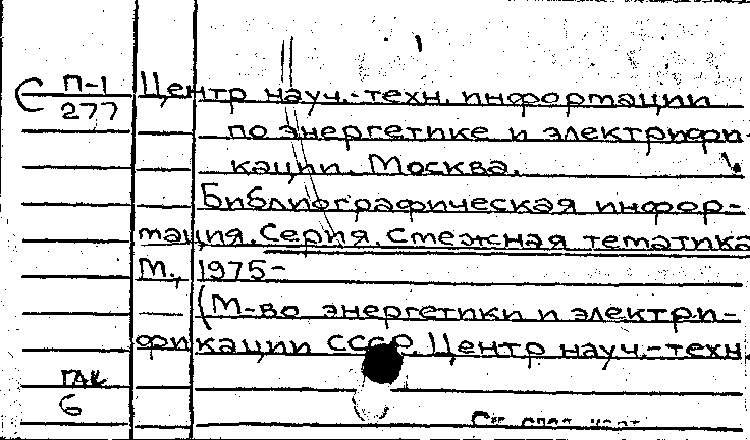 С П-1
277
Центр науч.-техн. информации
по энергетике и электрифи-
кации. Москва.
Библиографическая инфор-
мация. Серия. Смежная тематика
М., 1975-
(М-во энергетики и электри-
фикации СССР. Центр науч.-техн.
ГАК
6